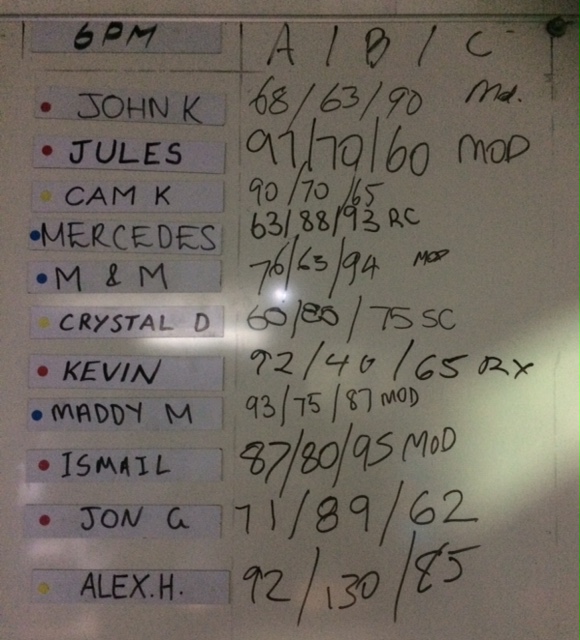 6PM A / B / C
JOHN K 68/63/90 Mod.
JULES 97/70/60 MOD
CAM K 90/70/65
MERCEDES 63/88/93 RC
M & M 76/63/94 MOD
CRYSTAL D 60/80/75 SC
KEVIN 92/40/65 RX
MADDY M 93/75/87 MOD
ISMAIL 87/80/95 MOD
JON G 71/89/62
ALEX.H. 92/130/85